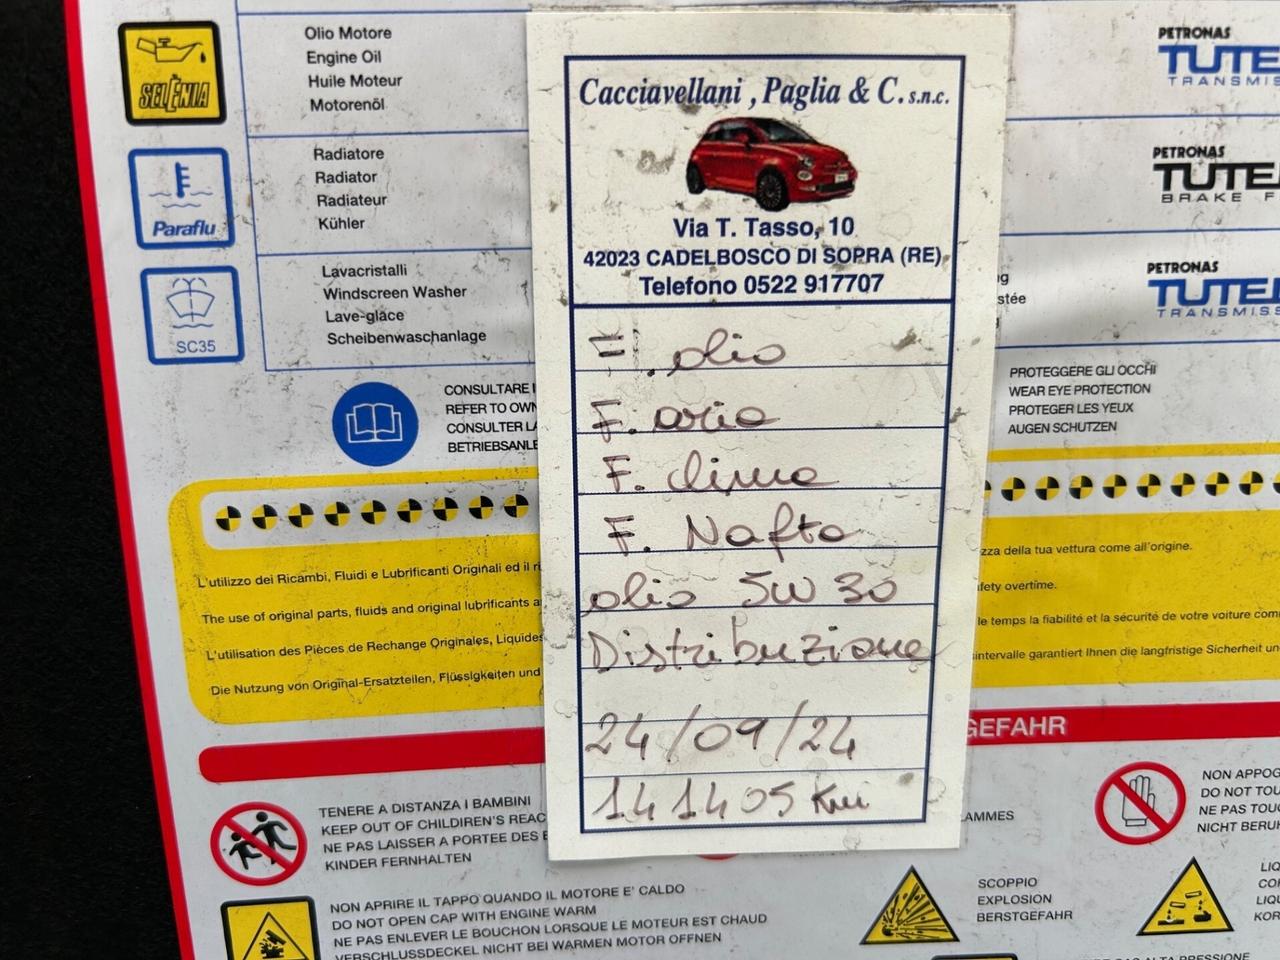 SELÈNIA
Olio Motore
Engine Oil
Huile Moteur
Motorenöl
Paraflu
Radiatore
Radiator
Radiateur
Kühler
SC35
Lavacristalli
Windscreen Washer
Lave-glace
Scheibenwaschanlage
CONSULTARE
REFER TO
CONSULTER
Cacciavellani , Paglia & C. s.n.c.
Via T. Tasso, 10
42023 CADELBOSCO DI SOPRA (RE)
Telefono 0522 917707
F. olio
F. aria
F. clima
F. Nafta
olio 5W30
Distribuzione
24/09/24
141405 Km
PETRONAS
TRANSMISS
PETRONAS
BRAKE F
PETRONAS
TRANSMISS
PROTEGGERE GLI OCCHI
WEAR EYE PROTECTION
PROTEGER LES YEUX
AUGEN SCHUTZEN
L'utilizzo dei Ricambi, Fluidi e Lubrificanti Originali ed il
zza della tua vettura come all'origine.
The use of original parts, fluids and original lubrificants
fety overtime.
L'utilisation des Pièces de Rechange Originales, Liquides
le temps la fiabilité et la sécurité de votre voiture
Die Nutzung von Original-Ersatzteilen, Flüssigkeiten und
sintervalle garantiert Ihnen die langfristige Sicherheit
GEFAHR
TENERE A DISTANZA I BAMBINI
KEEP OUT OF CHILDREN'S REAC
NE PAS LAISSER A PORTEE DES
KINDER FERNHALTEN
AMMES
NON APPOG
DO NOT TOU
NE PAS TOUC
NICHT BERU
NON APRIRE IL TAPPO QUANDO IL MOTORE E' CALDO
DO NOT OPEN CAP WITH ENGINE WARM
NE PAS ENLEVER LE BOUCHON LORSQUE LE MOTEUR EST CHAUD
VERSCHLUSSDECKEL NICHT BEI WARMEN MOTOR OFFNEN
SCOPPIO
EXPLOSION
BERSTGEFAHR